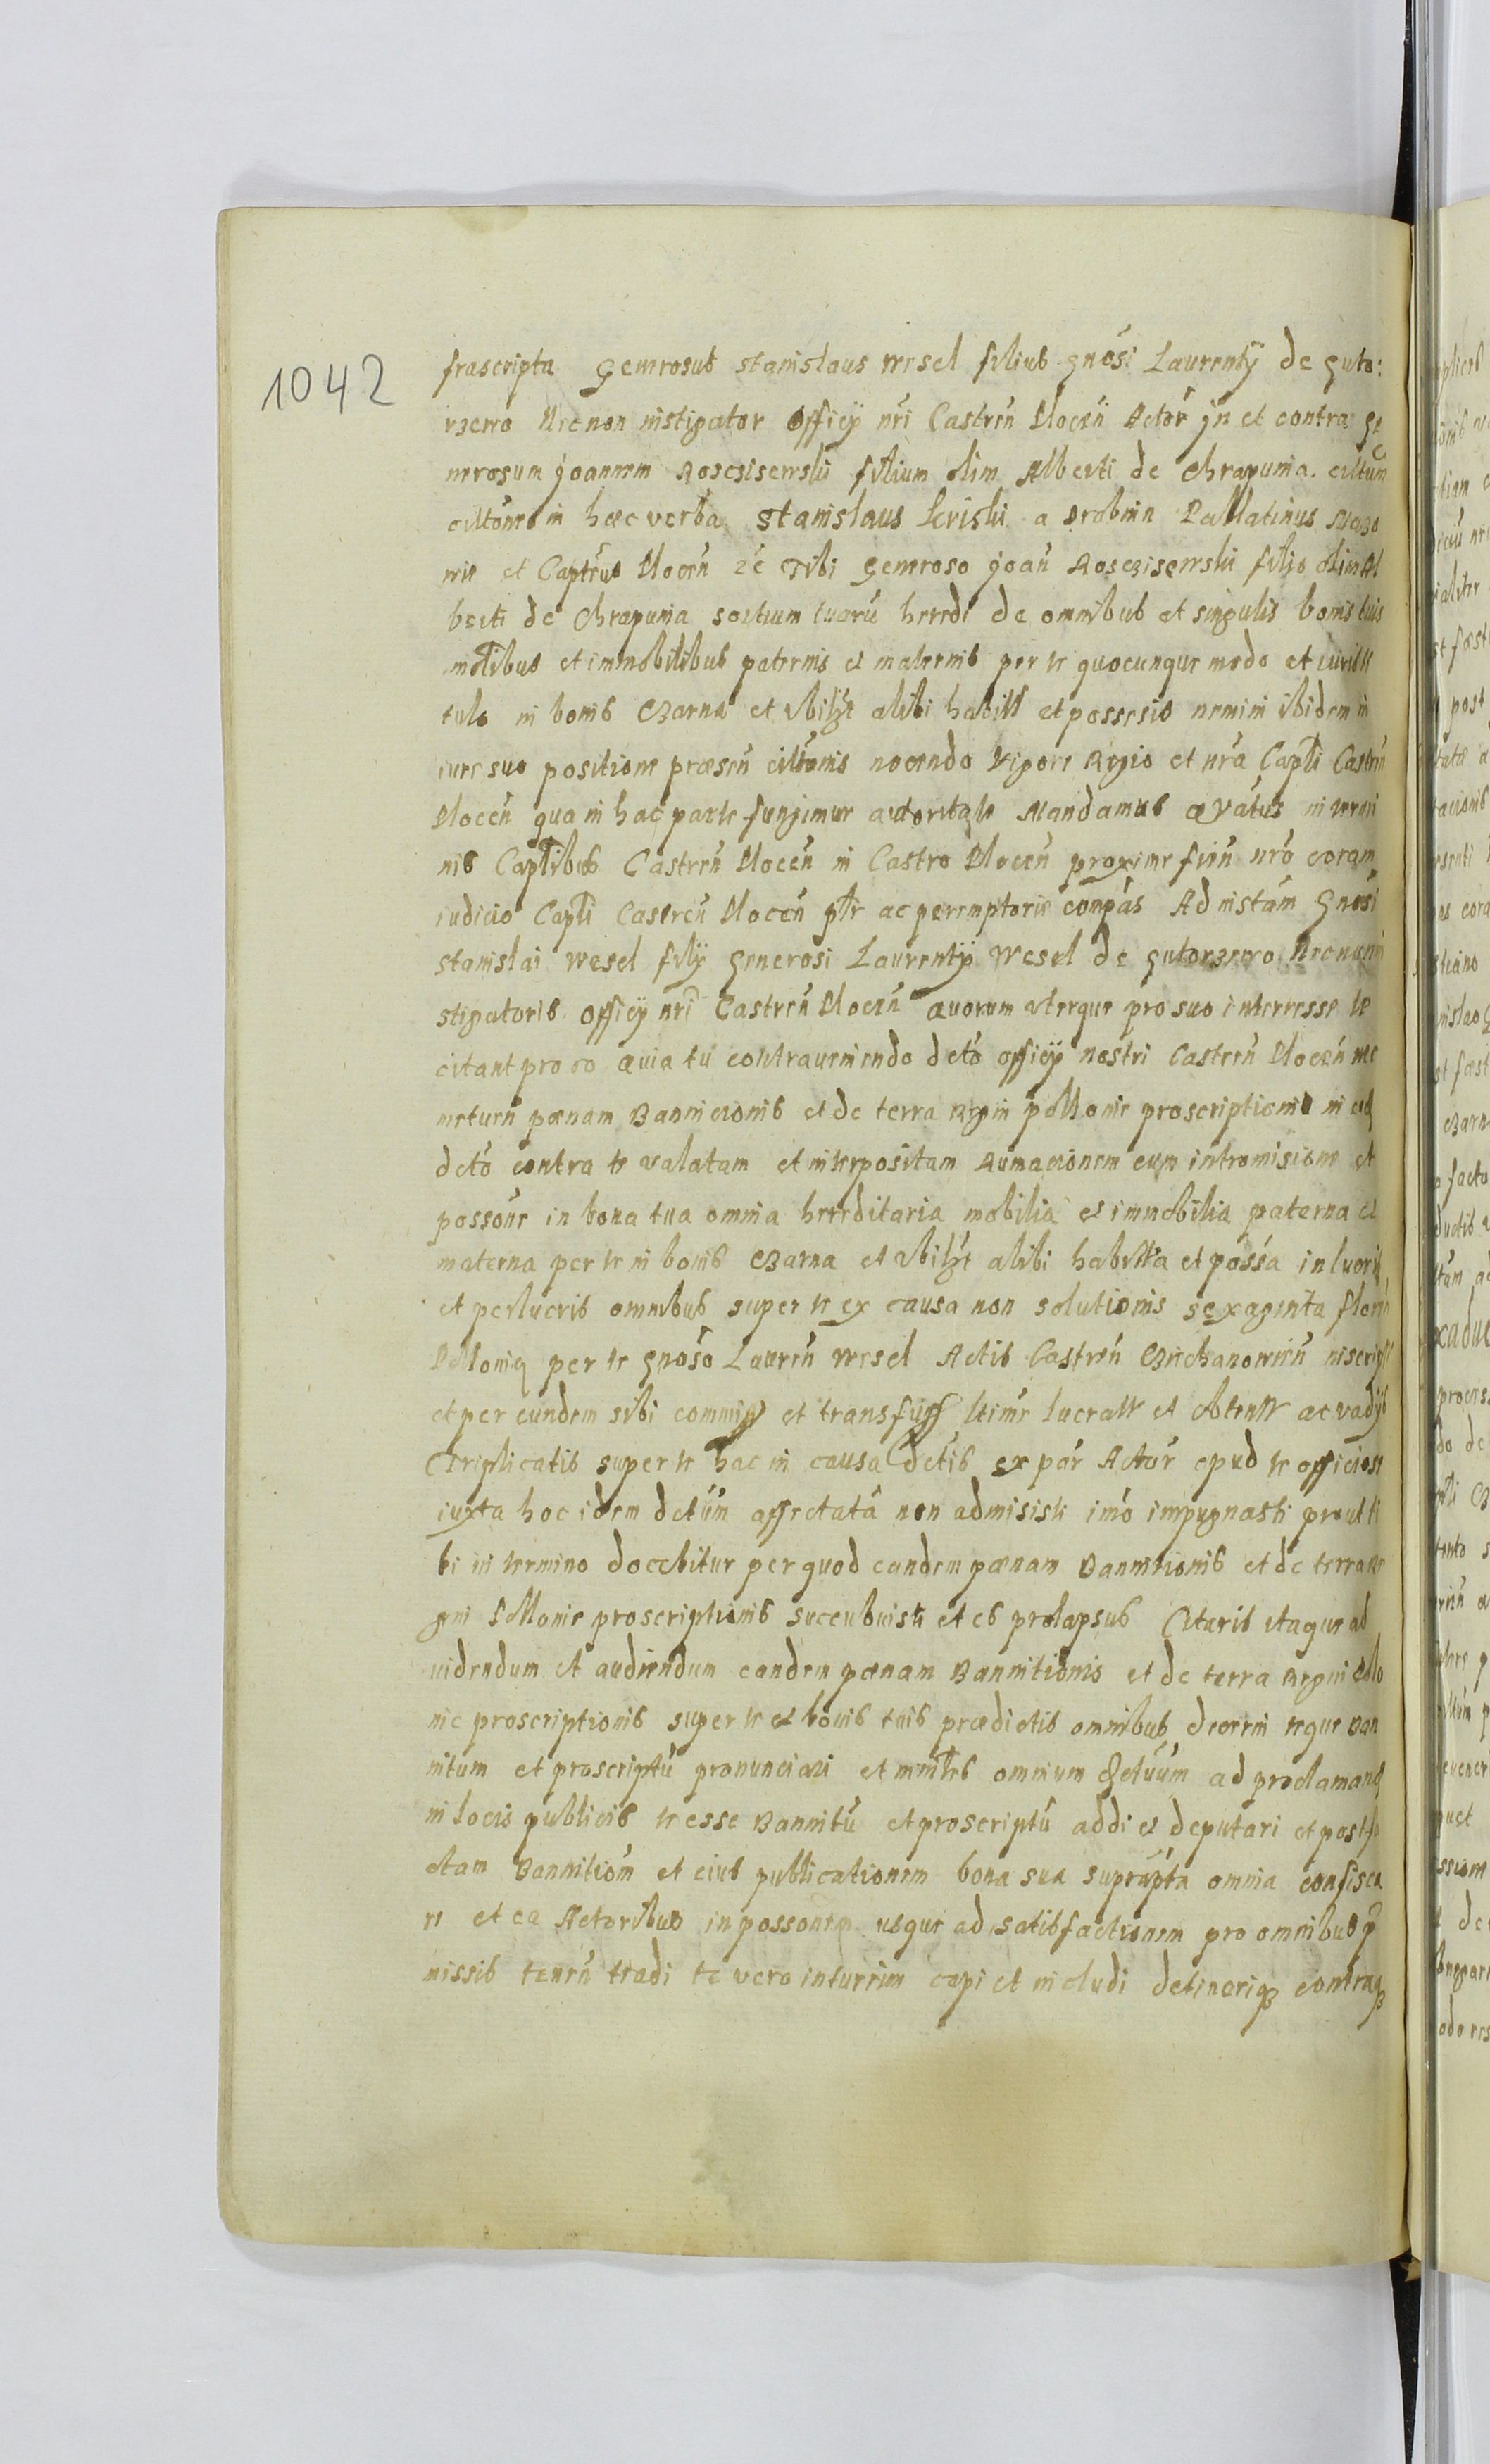 1042
frascripta Generosus Stanislaus Wesel filius gnosi Laurenty de Guto:
rzewo Necnon instigator officij nri Castren Plocen Actor jn et contra ge
nerosum joannem Rosciszewski filium olim Alberti de Chrapunia citatum
in hæc verba Stanislaus Kriski a Drobnin Pallatinus Mazo
wie et Captrus Plocen zc Tibi Generoso joan Rosczisewski filio olim Al
berti de Chrapunia sortium tuaru heredi de omnibus et singulis bonis tuis
mobilibus et immobilibus paternis et maternis per te quocunque modo et iuris ti
tulo in bonis Czarna et vbilzt alibi habitis et possesis nemini ibidem in
iure suo positione præsen cittonis nocendo Vigore Regio et nra Capli Castren
Plocen qua in hac parte fungimur autoritate Mandamus in termi
nis Caplibus Castren Plocen in Castro Plocen proxime fien nro coram
iudicio Capli Castren Plocen pltr ac peremptorie compas Ad instam Gnosi
Stanislai Wesel filij Generosi Laurentij Wesel de Gutorzewo Necnon in
stigatoris officij nri Castren Plocen Quorum uterque pro suo interresse te
citant pro eo Quia tu contraueniendo decto officij nostri Castren Plocen
meturn pænam Bannicionis et de terra Regni Pollonie proscriptionis in eod
decto contra te valatam et interpositam Rumacionem cum intromisione et
possone in bona tua omnia hereditaria mobilia et immobilia paterna et
materna per te in bonis Czarna et vbilzt alibi habitta et possa in lucris
et perlucris omnibus super te ex causa non solutionis sexaginta floren
Polloniq per te gnoso Lauren Wesel Actis Castren Cziechanowien inscript
et per eundem sibi commiss et transfuss ltime lucratt et obtentt ac vadijs
Triplicatis super te hac in causa dctis ex par Actor apud te officiose
iuxta hoc idem detum affectata non admisisti imo impugnasti prout ti
bi in termino docebitur per quod eandem pænam Bannitionis et de terra Re
gni Pollonie proscriptionis succubuisti et es prolapsus Citaris itaque ad
uidendum et audiendum eandem pænam Bannitionis et de terra Regni Pollo
nie proscriptionis super te et bonis tuis prædictis omnibus decerni teque Ban
nitum et proscriptu pronunciari et mintres omnium ad proclamand
in locis publicis te esse Bannitu et proscriptu addi et deputari et post fa
ctam Bannitiom et eius publicationem bona sua suprapta omnia confisca
ri et ea Actoribus in possonem usque ad satisfactionem pro omnibus p
missis tenen tradi te vero inturrim capi et includi detinerique contraq